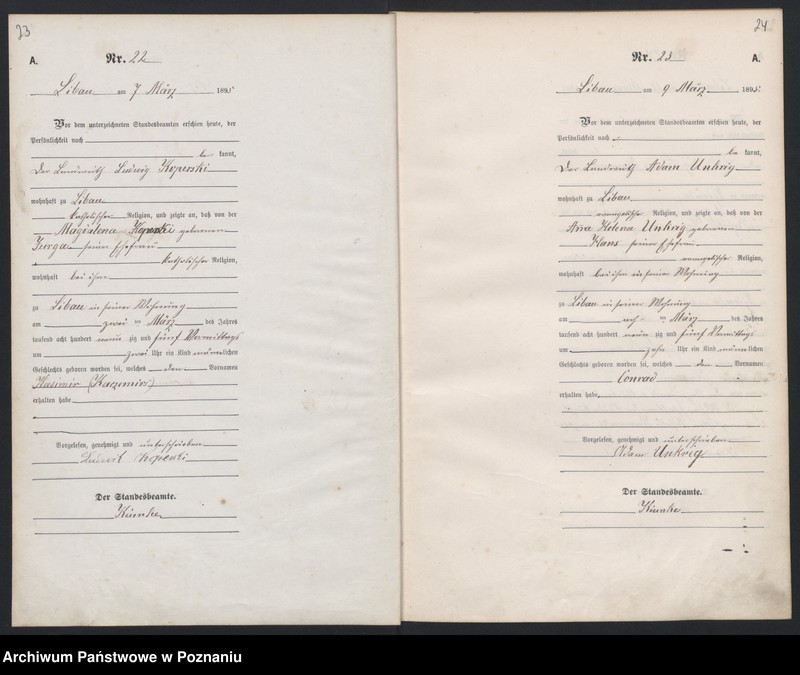 23
A. Nr. 22
Libau am 7 März 1895
Vor dem unterzeichneten Standesbeamten erschien heute, der
Persönlichkeit nach
be kannt,
der Landwirth Ludwig Koperski
wohnhaft zu Libau
katholischer Religion, und zeigte an, daß von der
Magdalena geborenen
seiner Ehefrau
katholischer Religion,
wohnhaft bei ihm
zu Libau in seiner Wohnung
am zwei ten März des Jahres
tausend acht hundert neun zig und fünf Vormittags
um zwei Uhr ein Kind männlichen
Geschlechts geboren worden sei, welches den Vornamen
Kasimir (Kazimier)
erhalten habe
Vorgelesen, genehmigt und unterschrieben
Der Standesbeamte.
24
Nr. 23 A.
Libau am 9 März 1895
Vor dem unterzeichneten Standesbeamten erschien heute, der
Persönlichkeit nach
be kannt,
Der Landwirth Adam Unkrig
wohnhaft zu Libau
evangelischer Religion, und zeigte an, daß von der
Helena Unkrig geborenen
seiner Ehefrau
evangelischer Religion,
wohnhaft bei ihm in seiner Wohnung
zu Libau in seiner Wohnung
am ten März des Jahres
tausend acht hundert neun zig und fünf Vormittags
um zehn Uhr ein Kind männlichen
Geschlechts geboren worden sei, welches den Vornamen
Conrad
erhalten habe
Vorgelesen, genehmigt und unterschrieben
Adam Unkrig
Der Standesbeamte.
Archiwum Państwowe w Poznaniu